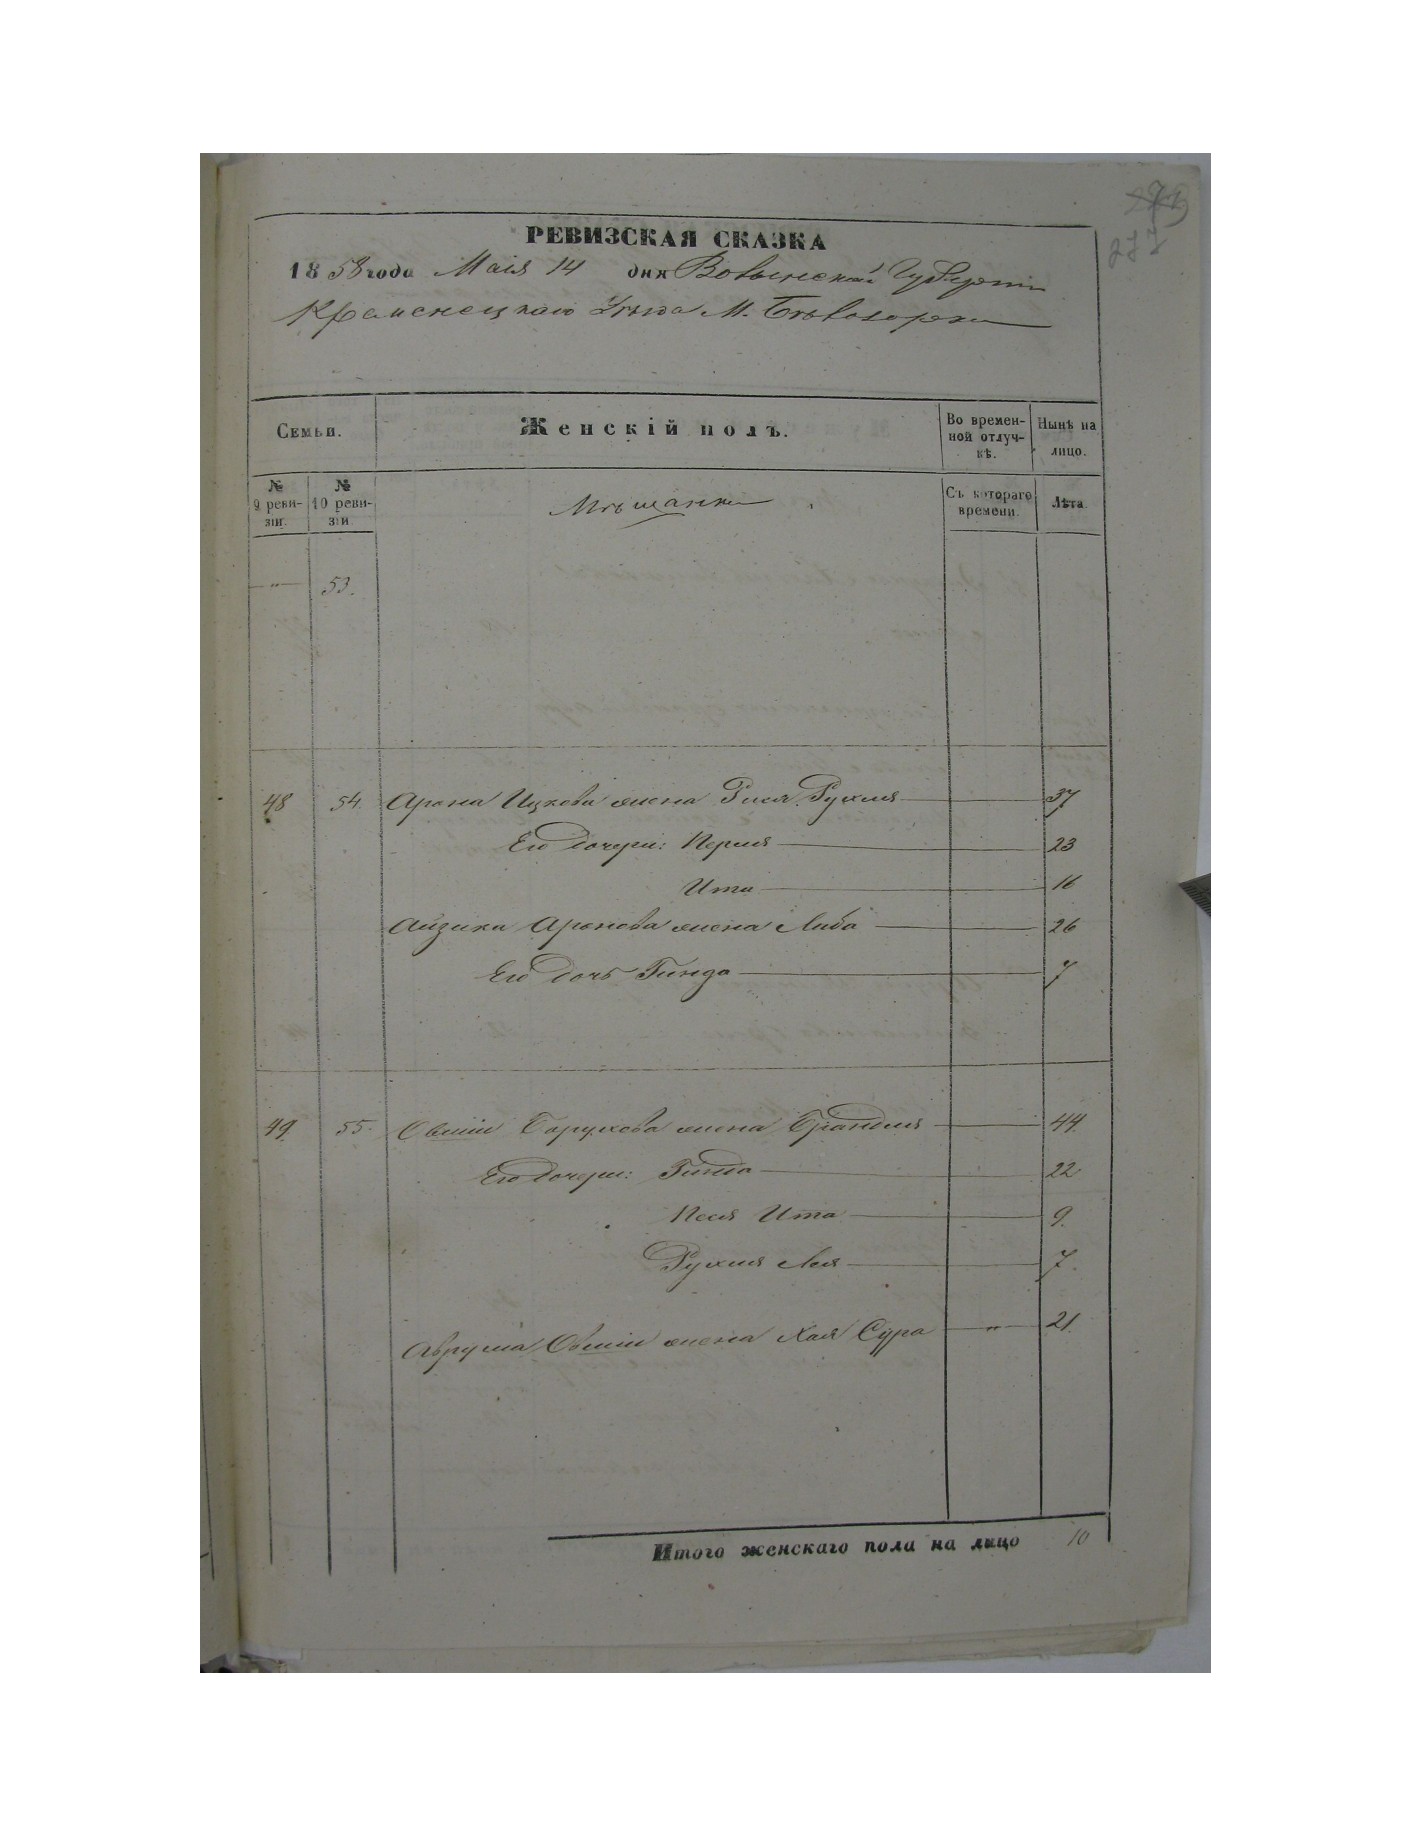 277
РЕВИЗСКАЯ СКАЗКА
1858 года Маія 14 дня Волынской Губерніи
Кременецкаго Уѣзда М. Бѣлозорки
Семьи.
Женскій полъ.
Во времен-
ной отлуч-
кѣ.
Нынѣ на
лицо.
№
9 реви-
зіи.
№
10 реви-
зіи.
Мѣщанки
Съ котораго
времени.
Лѣта.
— " — 53.
48 54. Арона Ицкова жена Рися Рухля 37
Его дочери: Перля 23
Ита 16
Айзика Аронова жена Либа 26
Его дочь Гинда 7
49. 55. Овшіи Борухова жена Брандля 44
Его дочери: Гинда 22
Песя Ита 9.
Рухля Лея 7.
Аврума Овшіи жена Хая Сура — " — 21.
Итого женскаго пола на лицо 10